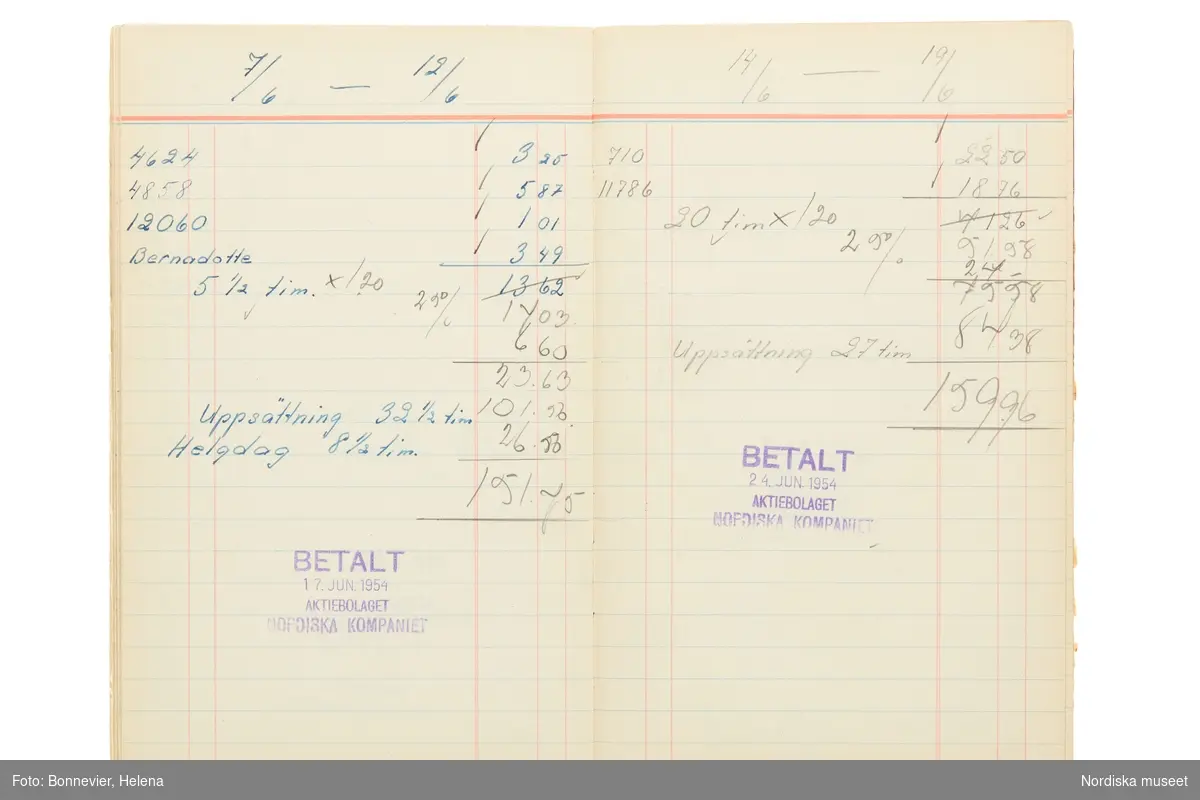 7/6 — 12/6
4624 3 25
4858 5 87
12060 1 01
Bernadotte 3 49
5 1/2 tim. x 1.20 25% 13 62
17 03
6 60
23.63
Uppsättning 32 1/2 tim 101.56
Helgdag 8 1/2 tim. 26.56
151.75
BETALT
17. JUN. 1954
AKTIEBOLAGET
NORDISKA KOMPANIET
14/6 — 19/6
710 22 50
11786 18 76
20 tim x 1/20 41 26
25% 51 58
24 -
75 58
Uppsättning 27 tim 84 38
159.96
BETALT
24. JUN. 1954
AKTIEBOLAGET
NORDISKA KOMPANIET
Foto: Bonnevier, Helena
Nordiska museet